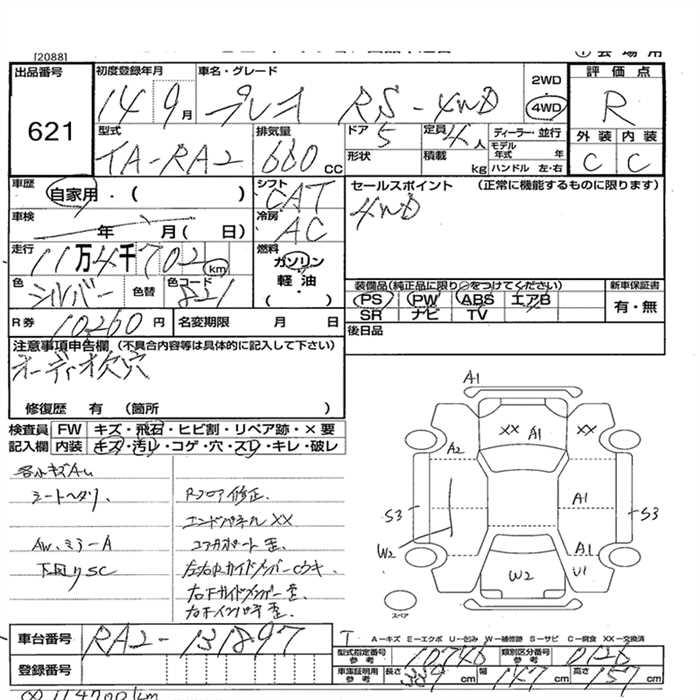 [2088]
出品番号
621
初度登録年月
14 9月
車名・グレード
プレオ RS-4WD
2WD
4WD
評価点
R
外装 内装
C C
型式
TA-RA2
排気量
660 CC
ドア 5
定員 4人
ディーラー・並行
形状
積載 kg
モデル年式 年
ハンドル 左・右
車歴
自家用・( )
シフト
CAT
セールスポイント (正常に機能するものに限ります)
4WD
車検
年 月( 日)
冷房
AC
走行
11万4千702km
燃料
ガソリン
軽油
( )
色
シルバー
色替
色コード
821
装備品(純正品に限り○をつけてください)
新車保証書
PS PW ABS エアB
SR ナビ TV
有・無
R券 10,260円
名変期限 月 日
後日品
注意事項申告欄(不具合内容等は具体的に記入して下さい)
オーディオ欠穴
修復歴 有 (箇所 )
検査員記入欄
FW キズ・飛石・ヒビ割・リペア跡・×要
内装 キズ・汚レ・コゲ・穴・スレ・キレ・破レ
各小キズAU
シートヘタリ、
AW、ミラーA
下回りSC
Rフロア修正、
エンドパネルXX
コアサポート歪、
A1
XX A1 XX
A2
A1
S3
S3
W2
W2
A1
U1
スペア
車台番号
RA2-131897
登録番号
A−キズ E−エクボ U−凹み W−補修跡 S−サビ C−腐食 XX−交換済
型式指定番号 参考 10746
類別区分番号 参考 0126
車庫証明用 参考
長さ 339cm 幅 147cm 高さ 157cm